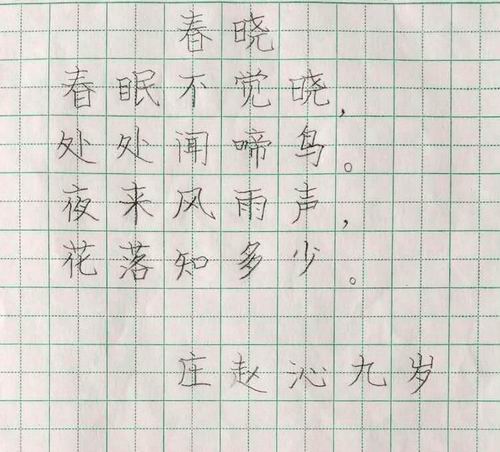 春晓
春眠不觉晓，
处处闻啼鸟。
夜来风雨声，
花落知多少。
庄赵沁九岁